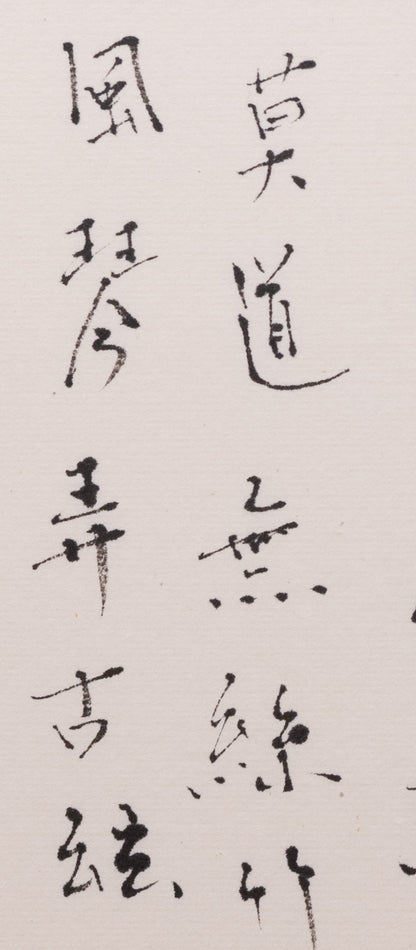 莫道無絲竹
風琴弄古弦